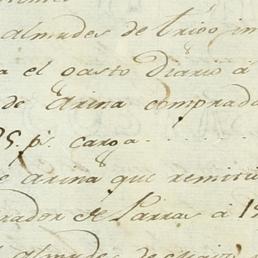 almudes de trigo in
a el gasto Diario á
de arina comprada
25. p.s carga.
e arina que remitió
rador de Parras á 19
almudes de